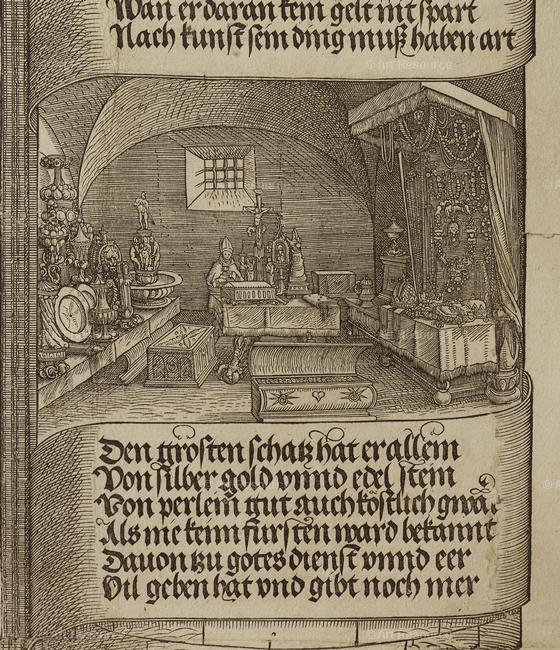 Wan er daran kein gelt nit spart
Nach kunst sein ding muß haben art
Art Resource
Den grösten schatz hat er allein
Von silber gold vnnd edel stein
Von perlein gut auch köstlich gwat
Als nie kein fürsten ward bekannt
Dauon tzu gotes dienst vnnd eer
Vil geben hat vnd gibt noch mer